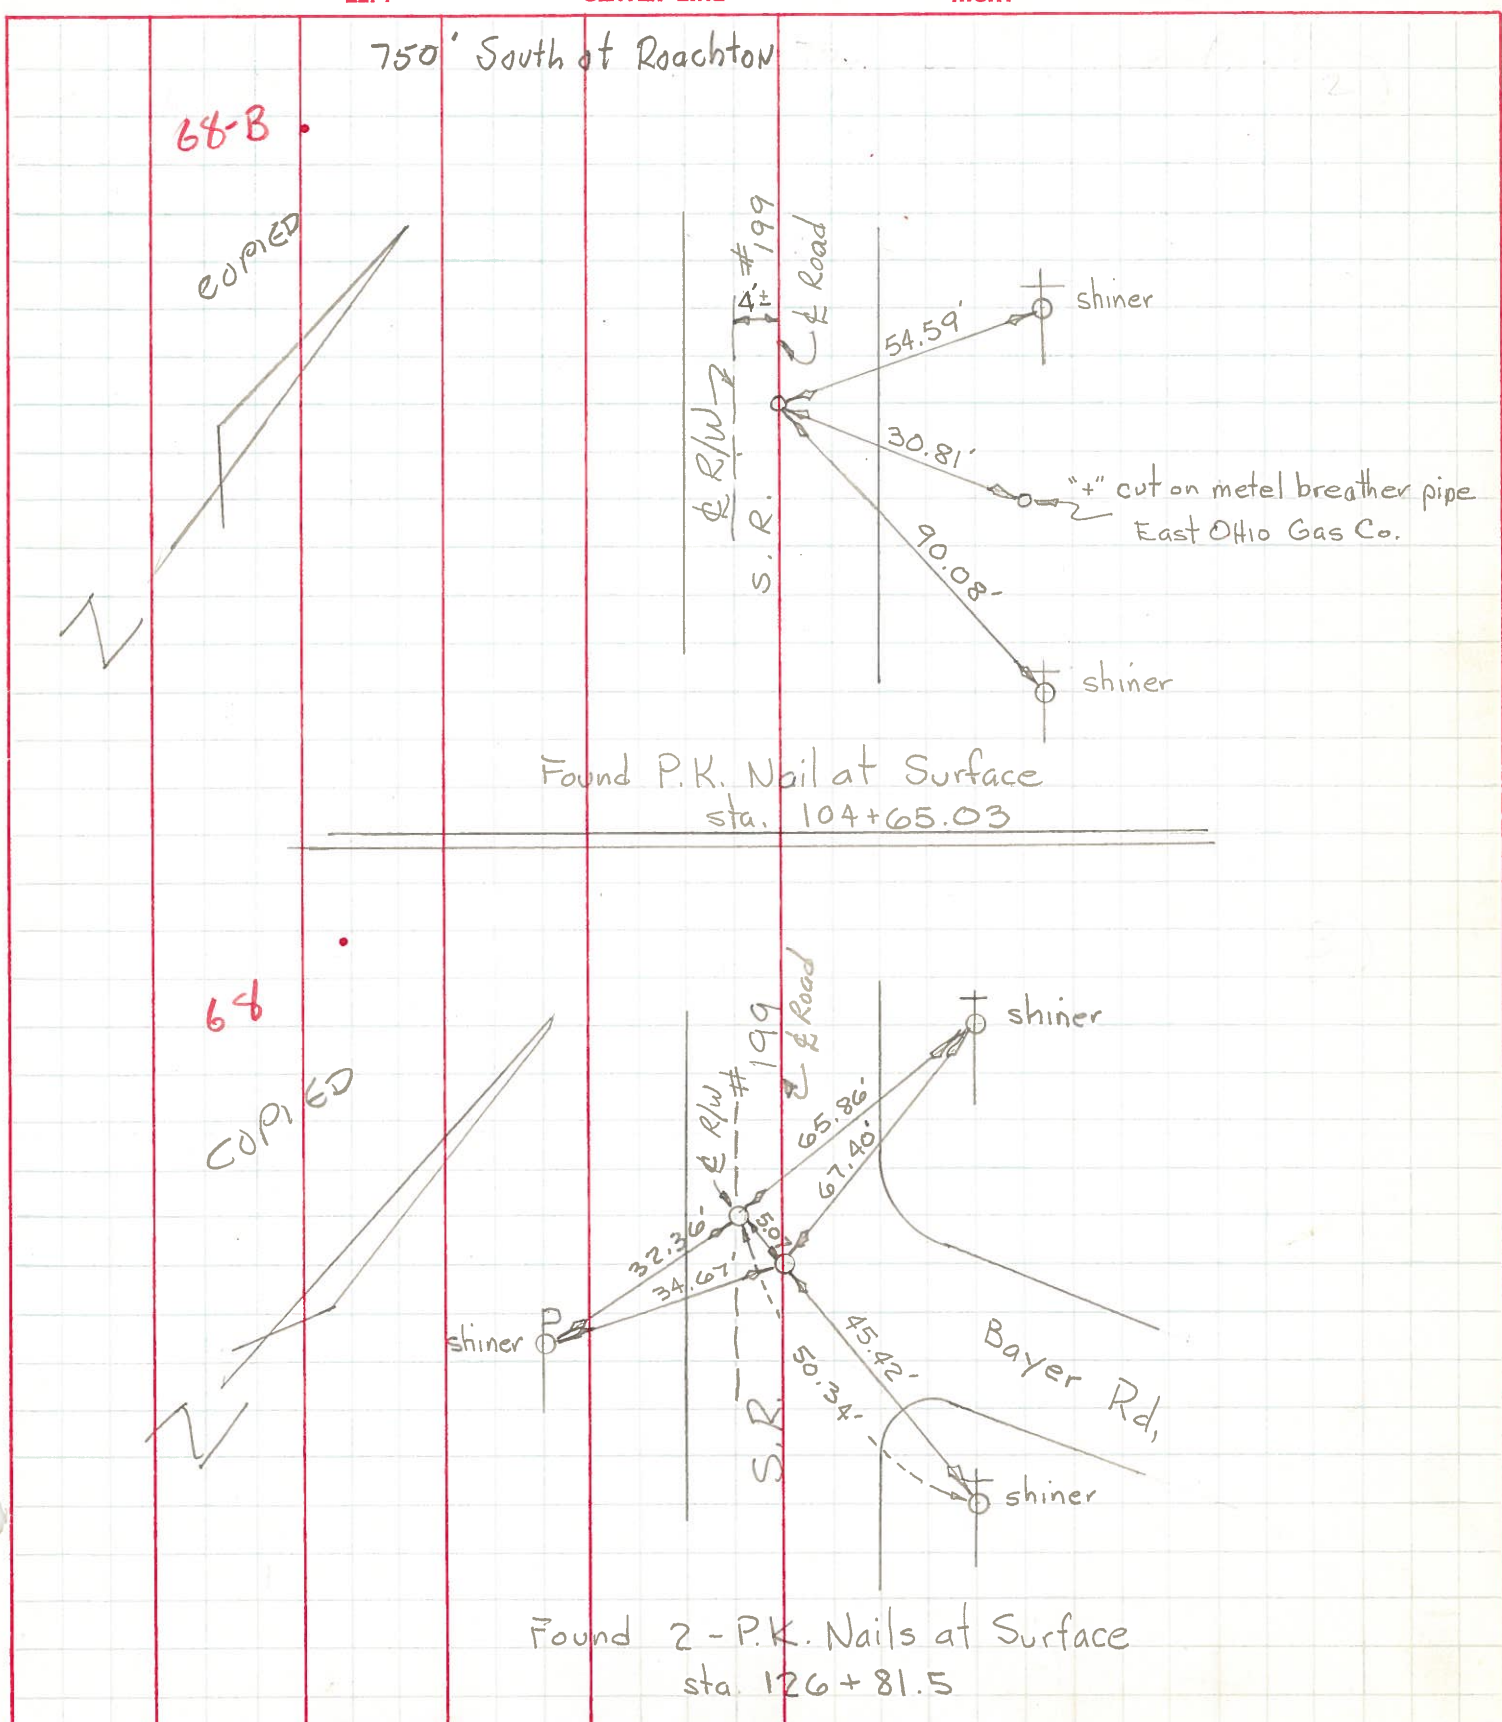 750' South of Roachton
68-B
COPIED
S. R. # 199
℄ Road
4'±
℄ R/W
54.59'
shiner
30.81'
"+" cut on metel breather pipe
East OHIO Gas Co.
90.08-
shiner
Found P.K. Nail at Surface
sta. 104+65.03
68
COPIED
N
N
S.R. # 199
℄ Road
℄ R/W
shiner
65.86-
67.40'
5.07
32.36-
34.67'
shiner
45.42'-
50.34-
Bayer Rd,
shiner
Found 2 - P.K. Nails at Surface
sta. 126 + 81.5